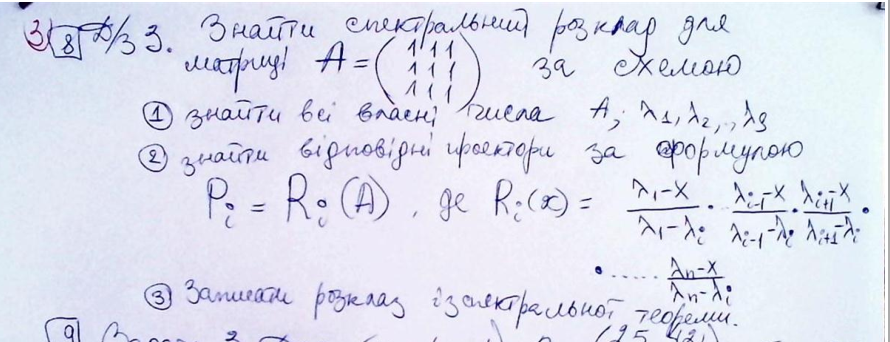 3) 8 Д/З 3. Знайти спектральний розклад для
матриці A = (1 1 1
1 1 1
1 1 1) за схемою
① знайти всі власні числа A; λ1, λ2, .., λs
② знайти відповідні проектори за формулою
Pi = Ri(A), де Ri(x) = λ1-x / λ1-λi · λi-1-x / λi-1-λi · λi+1-x / λi+1-λi ·
· ..... λn-x / λn-λi
③ Записати розклад із спектральної теореми.
9